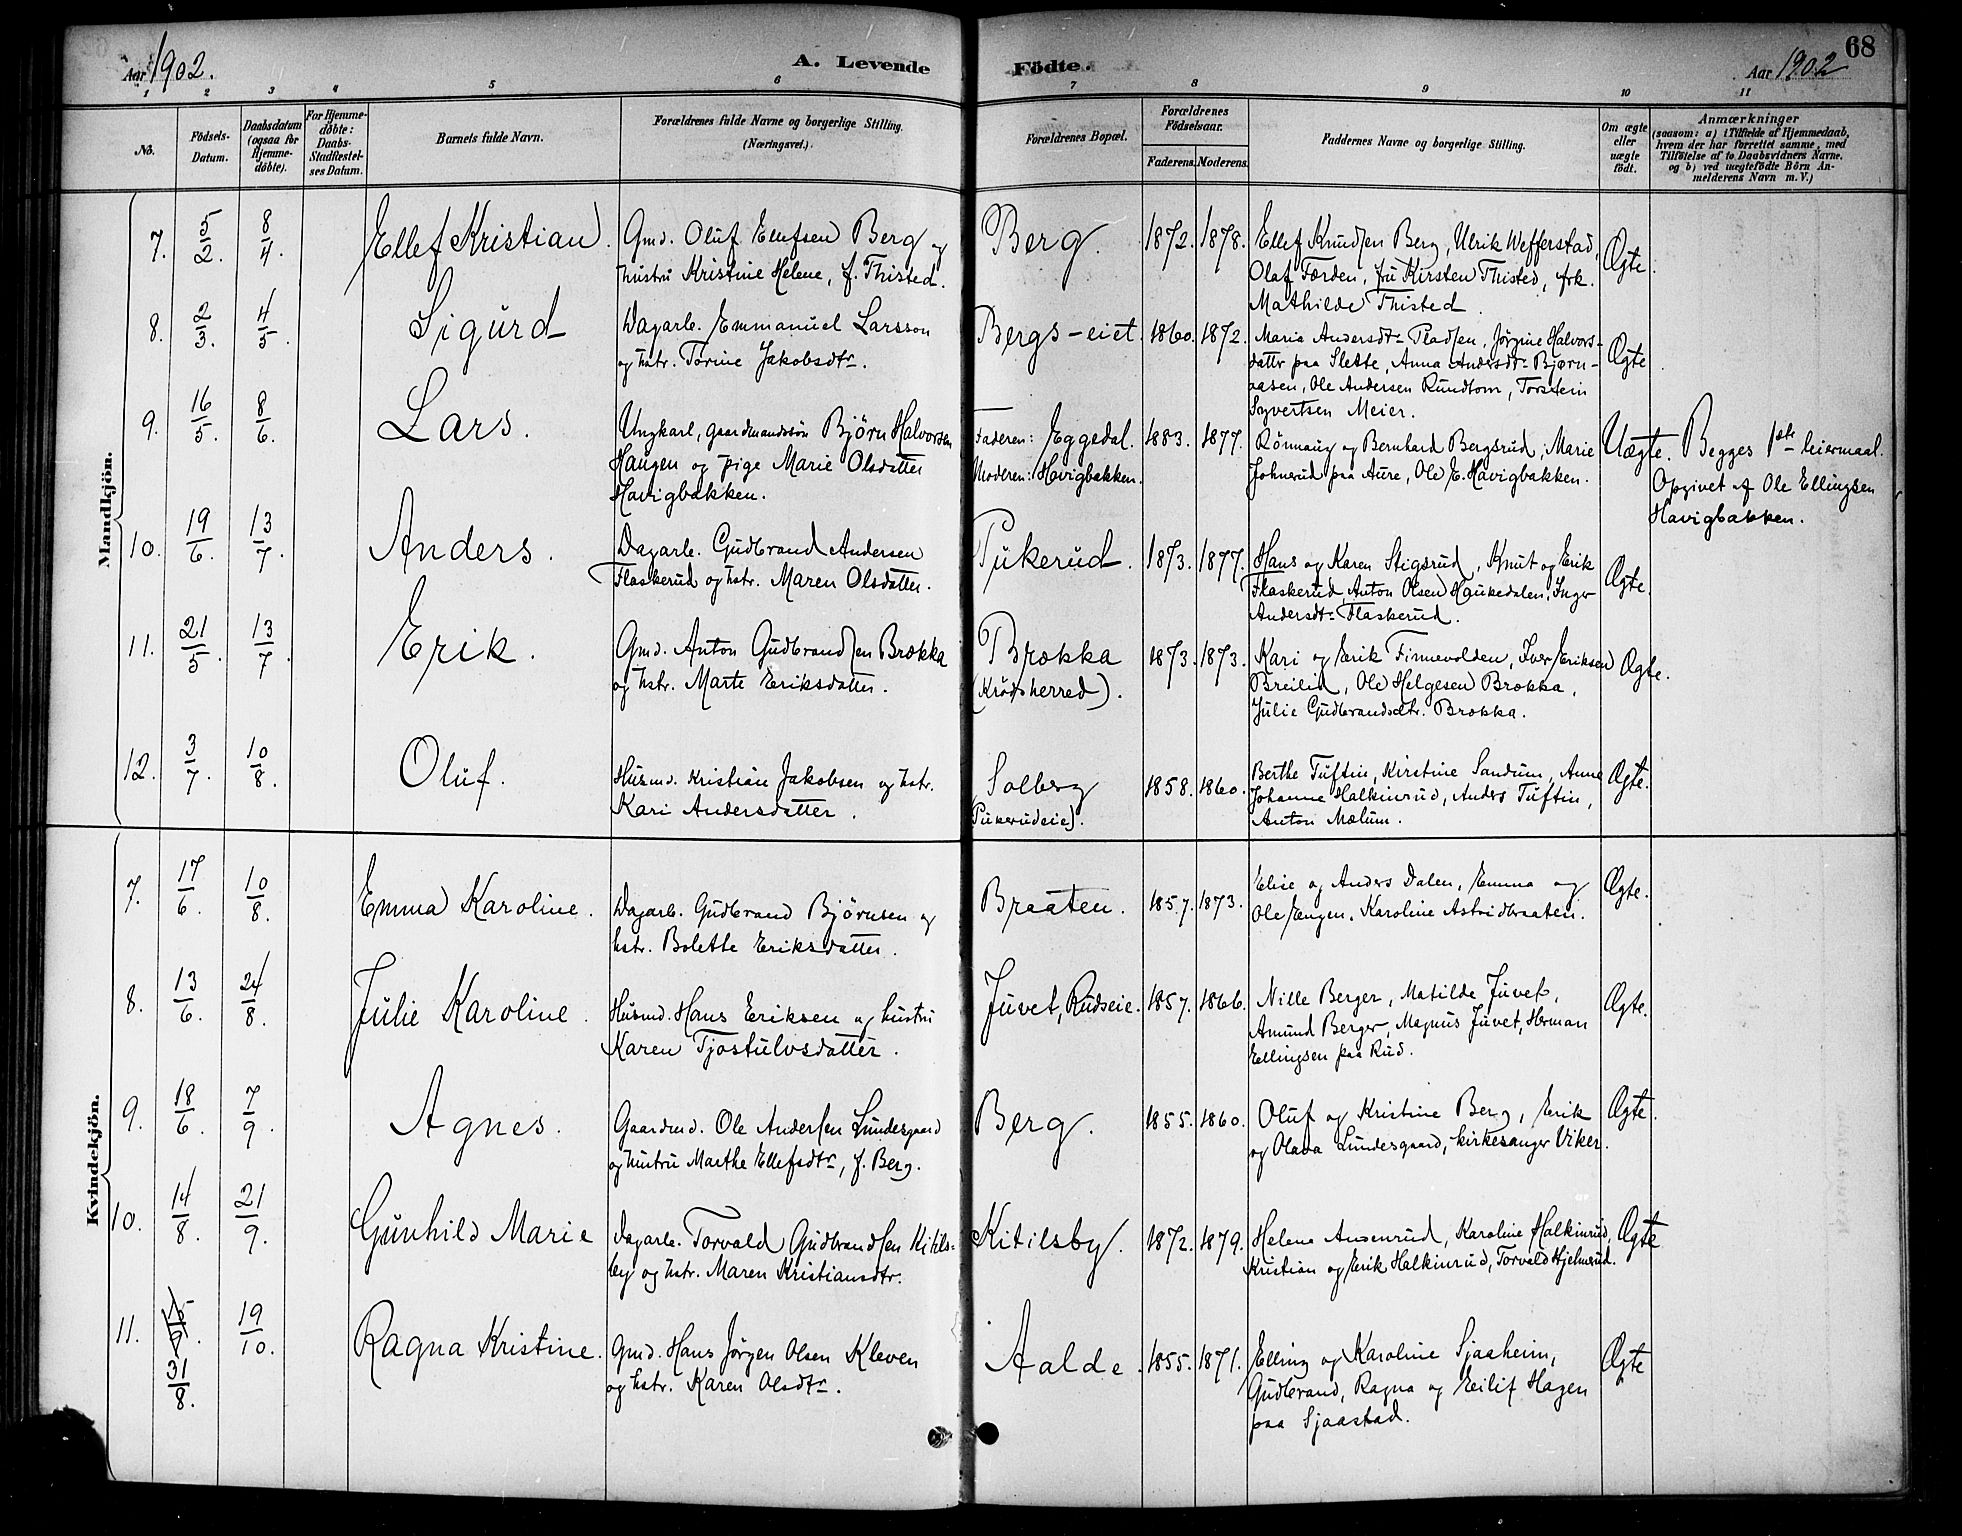 Aar 1902.
A. Levende
Födte.
Aar 1902
68
1 2 3 4 5 6 7 8 9 10 11
No.
Födsels-
Datum.
Daabsdatum
(ogsaa for
Hjemme-
døbte).
For Hjemme-
døbte:
Daabs-
Stadfæstel-
ses Datum.
Barnets fulde Navn.
Forældrenes fulde Navne og borgerlige Stilling.
(Næringsvei.)
Forældrenes Bopæl.
Forældrenes
Födselsaar.
Faderens. Moderens.
Faddernes Navne og borgerlige Stilling.
Om ægte
eller
uægte
födt.
Anmærkninger
(saasom: a) i Tilfælde af Hjemmedaab,
hvem der har forrettet samme, med
Tilföielse af to Daabsvidners Navne,
og b) ved uægtefødte Börn An-
melderens Navn m. V.)
Mandkjön.
7. 5/2. 8/4. Ellef Kristian. Gmd. Oluf Ellefsen Berg og
hustru Kristine Helene, f. Thisted.
Berg. 1872. 1878. Ellef Knudsen Berg, Ulrik Wefferstad,
Olaf Førden, fru Kirsten Thisted, frk.
Mathilde Thisted.
Ægte.
8. 2/3. 4/5. Sigurd Dagarb. Emmanuel Larsson
og hstr. Torine Jakobsdtr.
Bergs-eiet. 1860. 1872. Maria Andersdtr Pladsen, Jørgine Halvors-
dattr paa Slette, Anna Andersdtr Bjørn-
aasen, Ole Andersen Rundtom, Torstein
Syvertsen Meier.
Ægte
9. 16/5. 8/6. Lars. Ungkarl, gaardmandssøn Björn Halvorsen
Haugen og pige Marie Olsdatter
Havigbakken.
Faderen: Eggedal.
Moderen: Havigbakken.
1883. 1877. Rönnaug og Bernhard Bergsrud, Marie
Johnsrud paa Aure, Ole E. Havigbakken.
Uægte. Begges 1ste leiermaal.
Opgivet af Ole Ellingsen
Havigbakken.
10. 19/6. 13/7. Anders. Dagarb. Gudbrand Andersen
Flaskerud og hstr. Maren Olsdatter.
Pukerud. 1873. 1877. Hans og Karen Stigsrud, Knut og Erik
Flaskerud, Anton Olsen Haukedalen, Inger
Andersdtr Flaskerud.
Ægte.
11. 21/5. 13/7. Erik. Gmd. Anton Gudbrandsen Brokka
og hstr. Marte Eriksdatter.
Brokka
(Krödsherred).
1873. 1873. Kari og Erik Finnevolden, Iver Eriksen
Breilid, Ole Helgesen Brokka,
Julie Gudbrandsdtr. Brokka.
Ægte.
12. 3/7. 10/8. Oluf. Husmd. Kristian Jakobsen og hstr.
Kari Andersdatter.
Solberg
(Pukerudeie).
1858. 1860. Berthe Tuftin, Kirstine Sandum, Anne
Johanne Halkinrud, Anders Tuftin,
Anton Mælum.
Ægte.
Kvindekjön.
7. 17/6. 10/8. Emma Karoline. Dagarb. Gudbrand Björnsen og
hstr. Bolette Eriksdatter.
Braaten. 1857. 1873. Elise og Anders Dalen, Emma og
Ole Engen, Karoline Astridbraaten.
Ægte.
8. 13/6. 24/8. Julie Karoline. Husmd. Hans Eriksen og hustru
Karen Tjostulvsdatter.
Juvet, Rudseie. 1857. 1866. Nille Berger, Matilde Juvet,
Amund Berger, Magnus Juvet, Herman
Ellingsen paa Rud.
Ægte.
9. 18/6. 7/9. Agnes. Gaardmd. Ole Andersen Lundesgaard
og hustru Marthe Ellefsdtr, f. Berg.
Berg. 1855. 1860. Oluf og Kristine Berg, Erik
og Olava Lundesgaard, kirkesanger Viker.
Ægte.
10. 14/8. 21/9. Gunhild Marie Dagarb. Torvald Gudbrandsen Kitils-
by og hstr. Maren Kristiansdtr.
Kitilsby. 1872. 1879. Helene Ansenrud, Karoline Halkinrud,
Kristian og Erik Halkinrud, Torvald Hjelmerud.
Ægte
11. 31/8. 19/10. Ragna Kristine. Gmd. Hans Jörgen Olsen Kleven
og hstr. Karen Olsdtr.
Aalde. 1855. 1871. Elling og Karoline Sjaaheim,
Gudbrand, Ragna og Eilif Hagen
paa Sjaastad.
Ægte